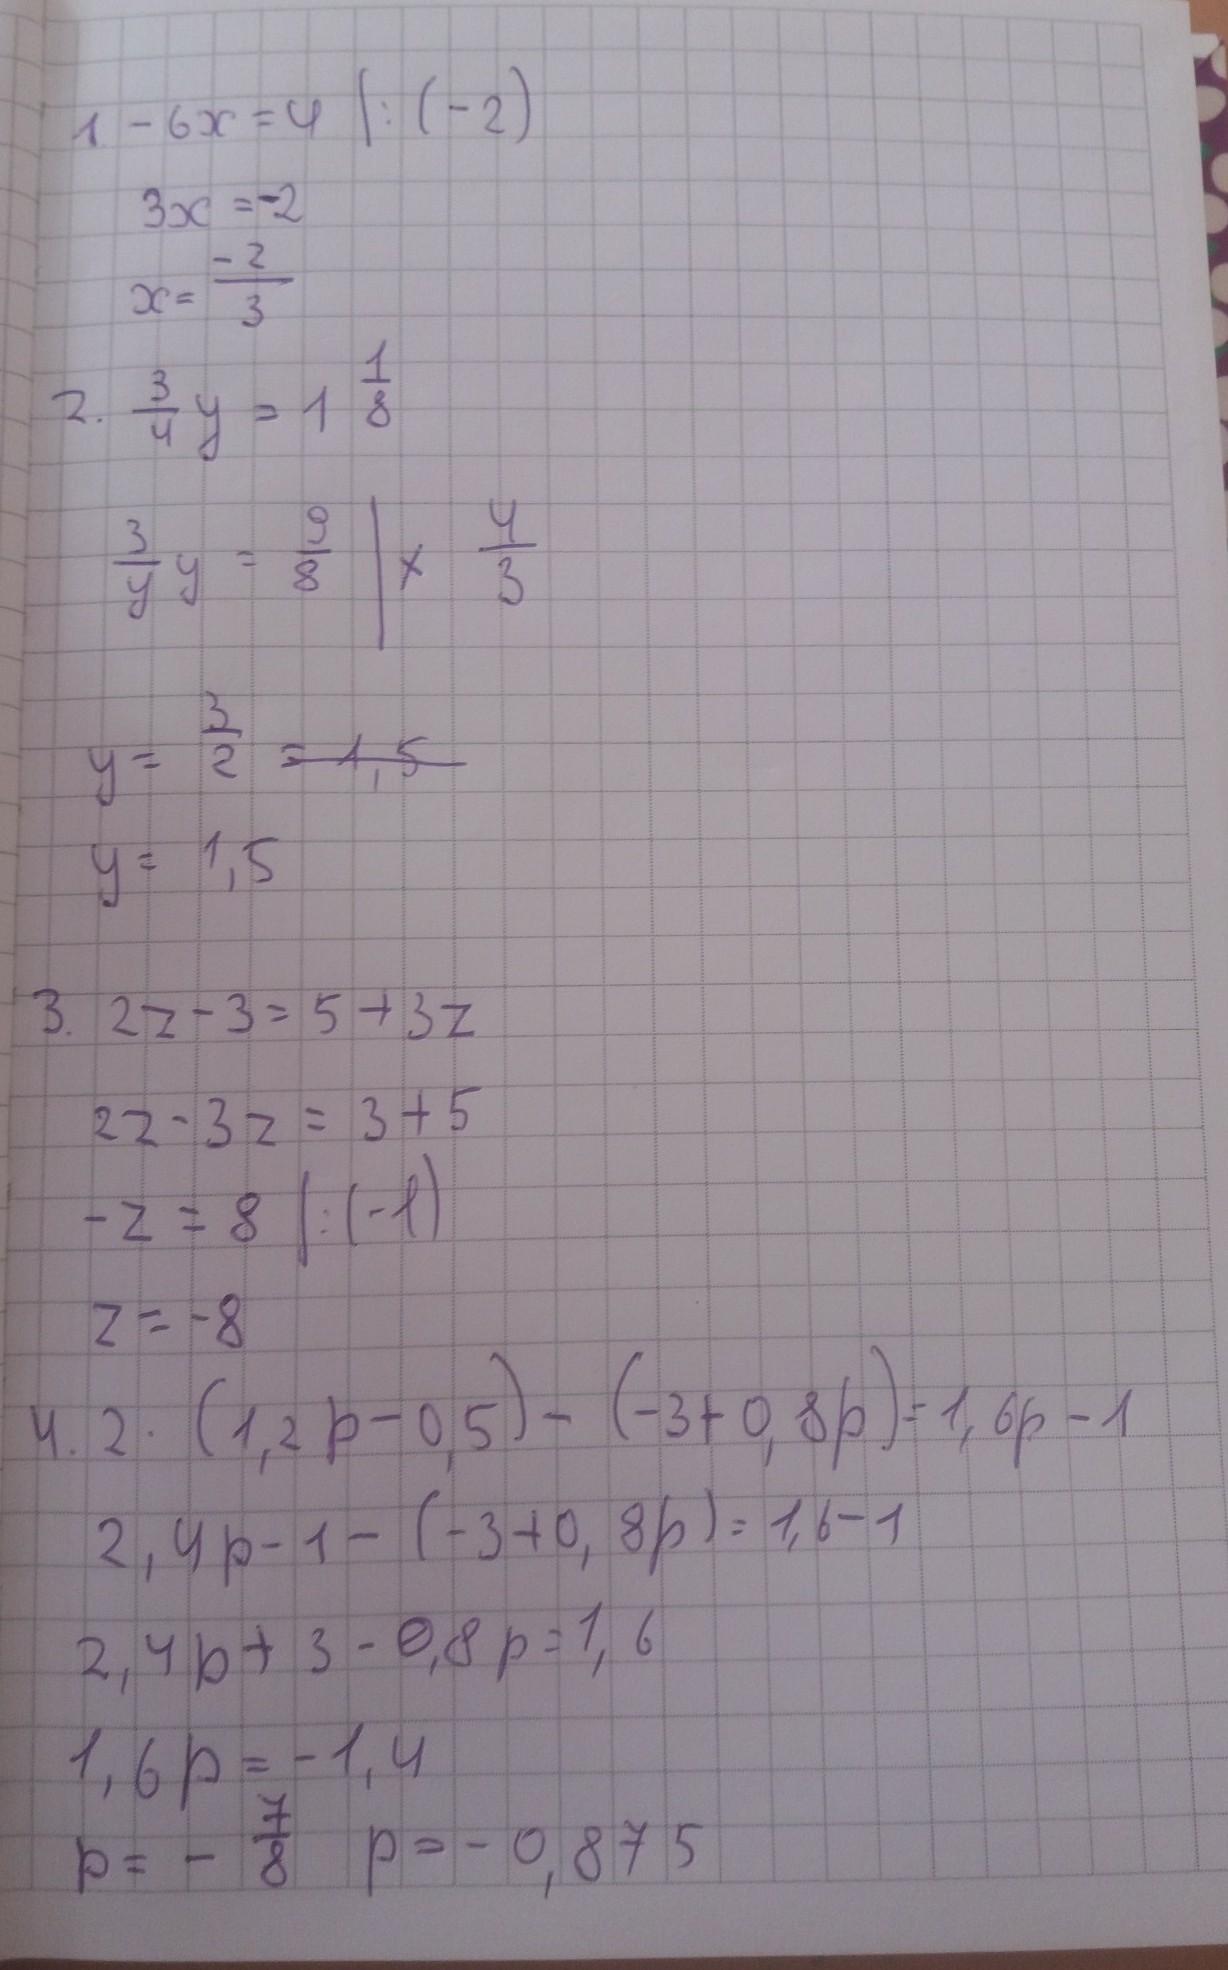 1. -6x = 4 |:(-2)
3x = -2
x = -2/3
2. 3/4 y = 1 1/8
3/4 y = 9/8 | × 4/3
y = 3/2 = 1,5
y = 1,5
3. 2z - 3 = 5 + 3z
2z - 3z = 3 + 5
-z = 8 |:(-1)
z = -8
4. 2 · (1,2p - 0,5) - (-3 + 0,8p) = 1,6p - 1
2,4p - 1 - (-3 + 0,8p) = 1,6 - 1
2,4p + 3 - 0,8p = 1,6
1,6p = -1,4
p = - 7/8 p = -0,875